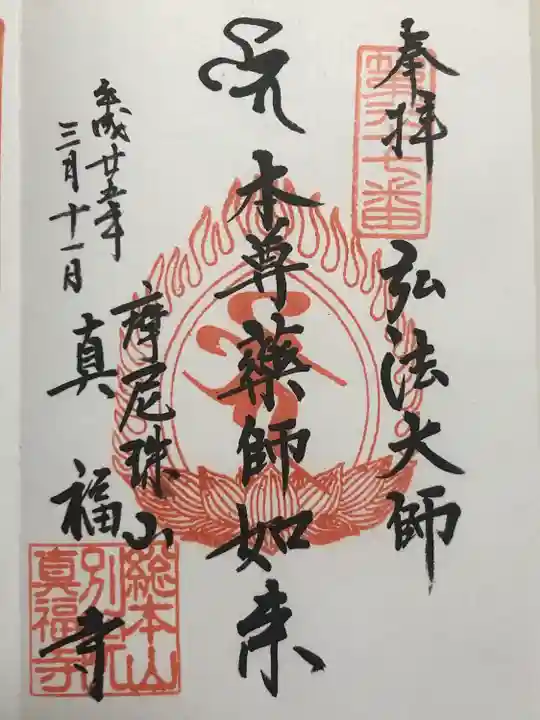 奉拝
弘法大師
本尊薬師如来
摩尼珠山
真福寺
平成廿五年
三月十一月
総本山
別院
真福寺